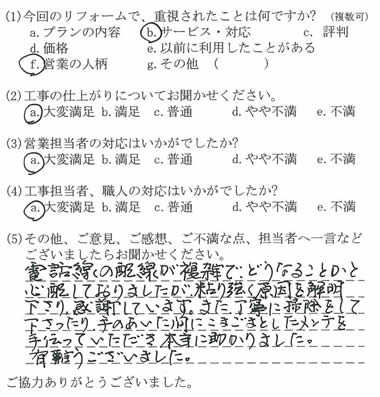 (1)今回のリフォームで、重視されたことは何ですか? (複数可)
a.プランの内容 b.サービス・対応 c. 評判
d.価格 e.以前に利用したことがある
f.営業の人柄 g.その他 ( )
(2)工事の仕上がりについてお聞かせください。
a.大変満足 b.満足 c.普通 d.やや不満 e.不満
(3)営業担当者の対応はいかがでしたか?
a.大変満足 b.満足 c.普通 d.やや不満 e.不満
(4)工事担当者、職人の対応はいかがでしたか?
a.大変満足 b.満足 c.普通 d.やや不満 e.不満
(5)その他、ご意見、ご感想、ご不満な点、担当者へ一言など
ございましたらお聞かせください。
電話線の配線が複雑で、どうなることかと
心配しておりましたが粘り強く原因を解明
下さり、感謝しています。また丁寧に掃除をして
下さったり、手のあいた間にこまごまとしたメンテを
手伝っていただき本当に助かりました。
有難うございました。
ご協力ありがとうございました。